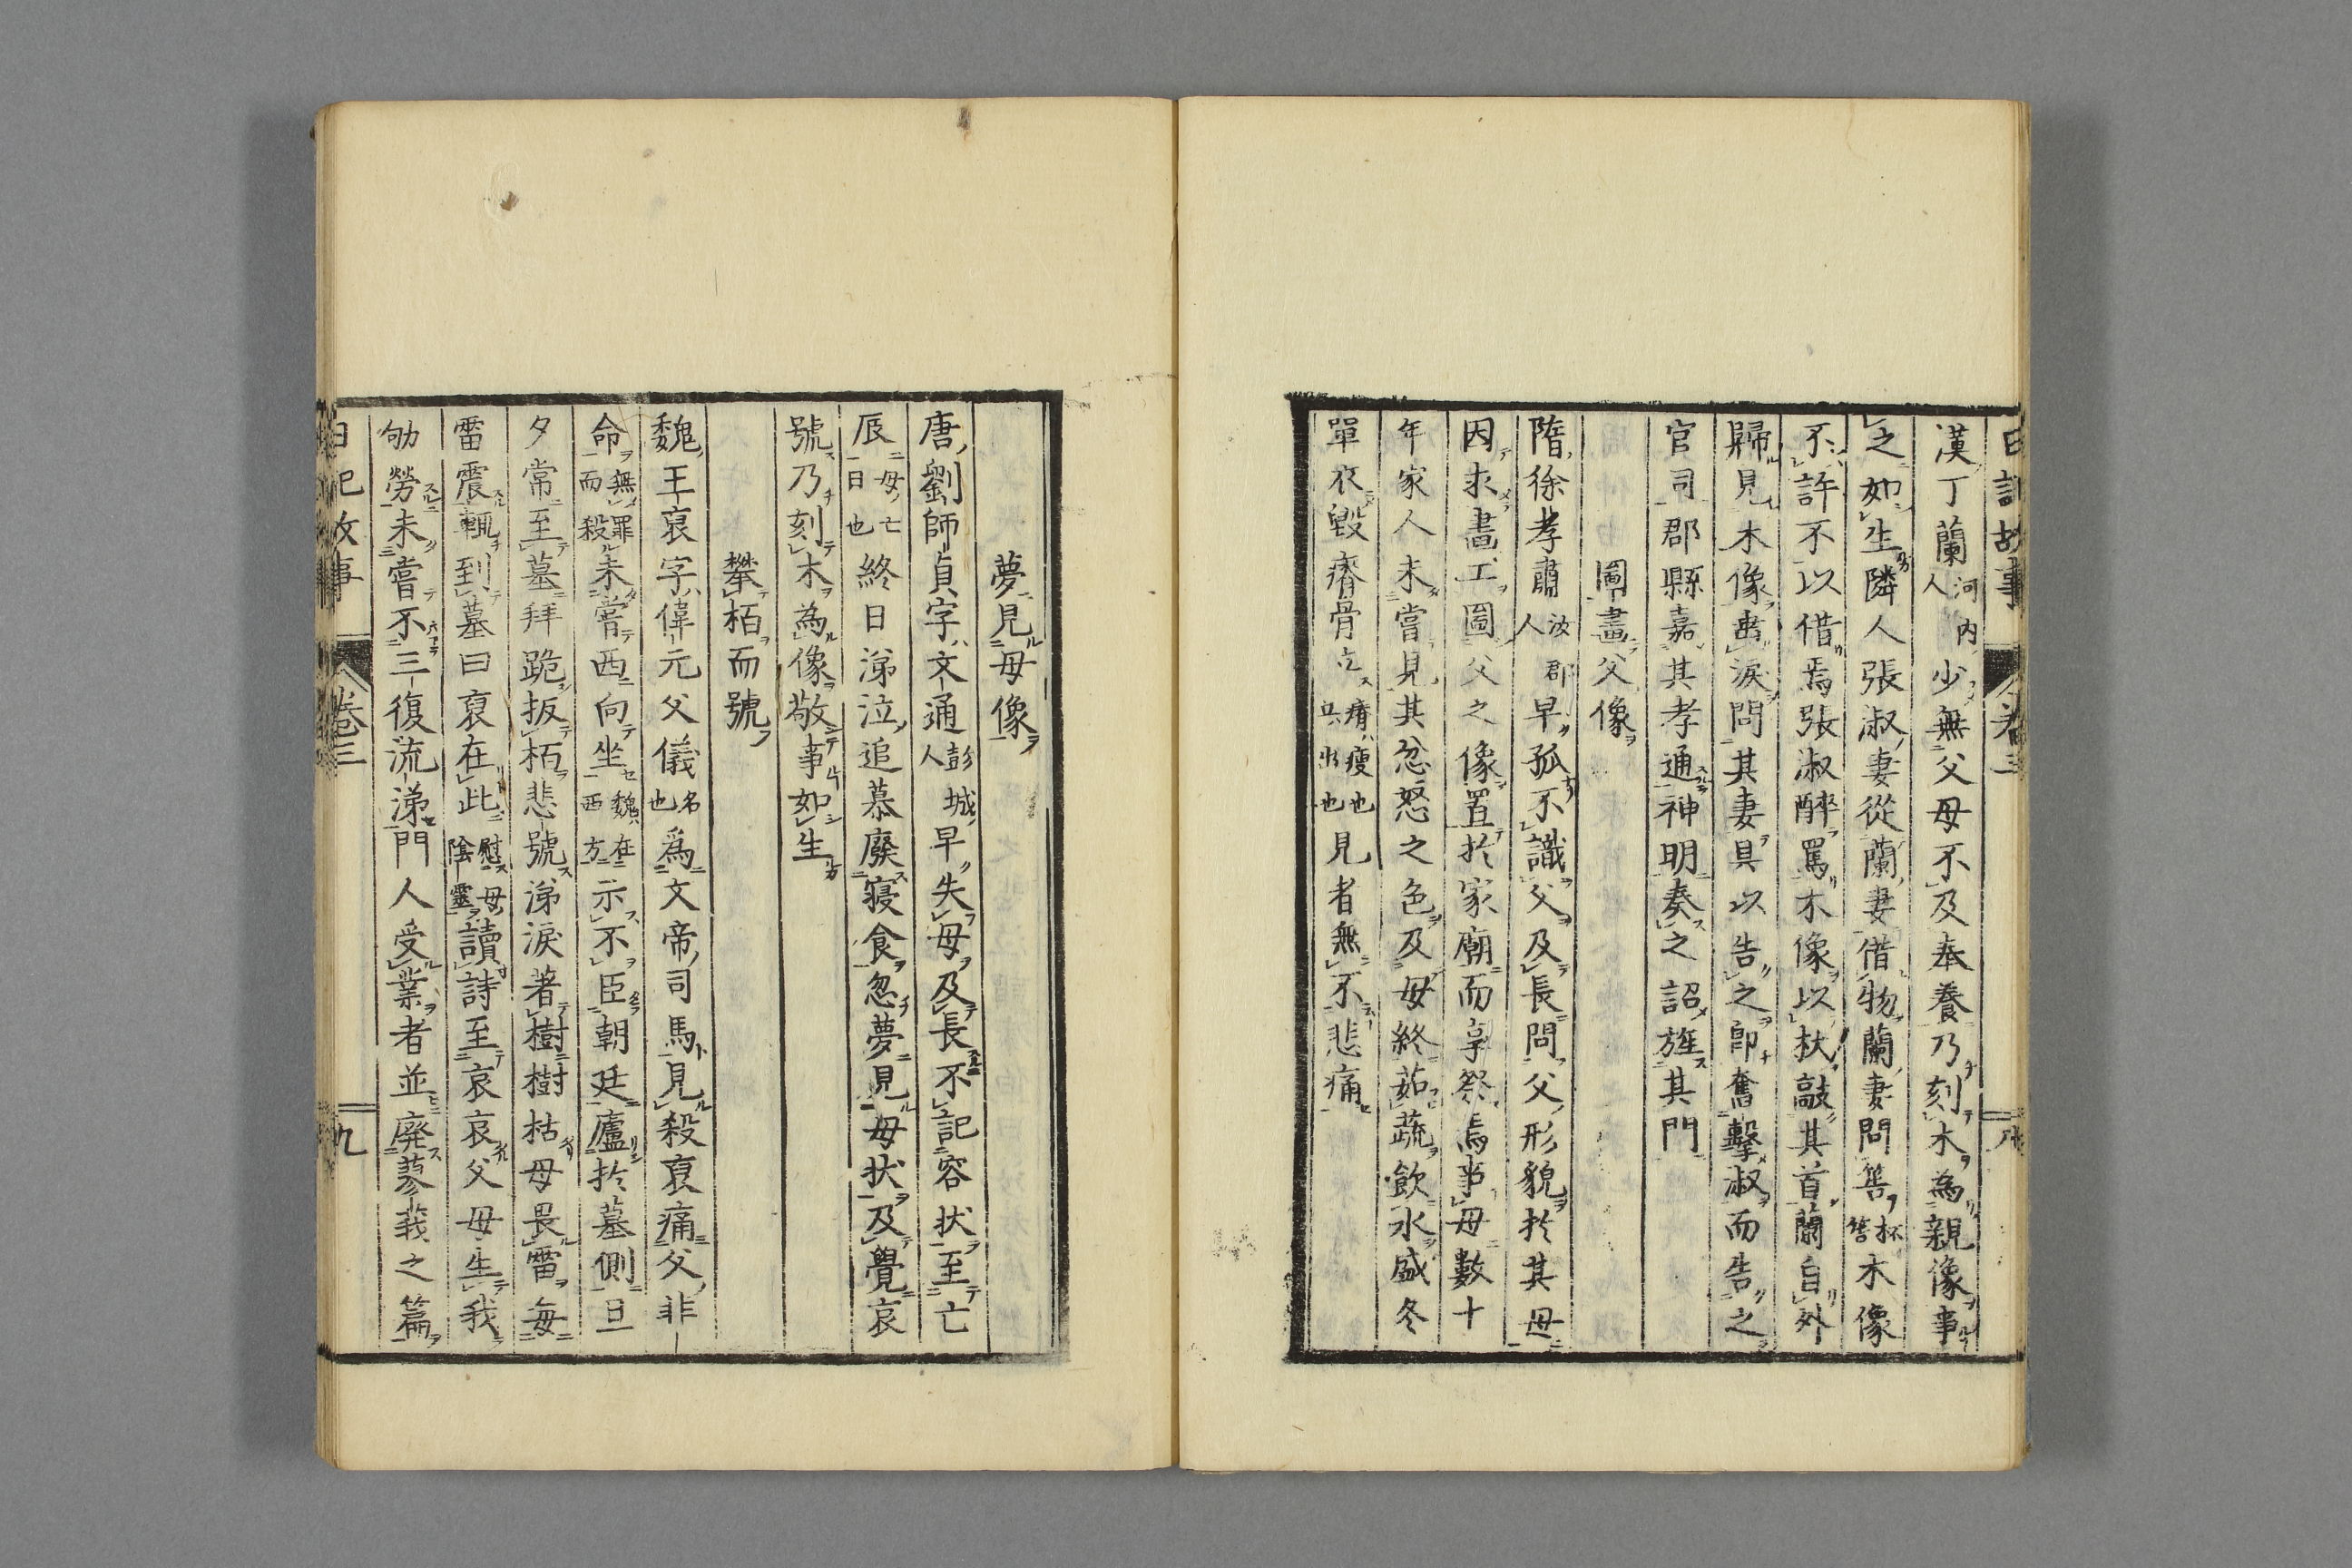 日記故事 卷三
漢丁蘭河内人少無父母不及奉養乃刻木為親像事
之如生隣人張淑妻從蘭妻借物蘭妻問筶杯筶木像
不許不以借焉張淑醉罵木像以杖敲其首蘭自外
歸見木像出淚問其妻具以告之即奮擊淑而告之
官司郡縣嘉其孝通神明奏之詔旌其門
圖畫父像
隋徐孝肅汲郡人早孤不識父及長問父形貌於其母
因求畫工圖父之像置於家廟而享祭焉事母數十
年家人未嘗見其忿怒之色及母終茹蔬飲水盛冬
單衣毀瘠骨立瘠瘦也見者無不悲痛
夢見母像
唐劉師貞字文通彭城人早失母及長不記容状至亡
辰母亡日也終日涕泣追慕廢寝食忽夢見母状及覺哀
號乃刻木為像敬事如生
攀栢而號
魏王裒字偉元父儀名也爲文帝司馬見殺裒痛父非
命無罪而殺未嘗西向坐魏在西方示不臣朝廷廬於墓側旦
夕常至墓拜跪扳栢悲號涕淚著樹樹枯母畏雷每
雷震輒到墓曰裒在此慰母陰靈讀詩至哀哀父母生我
劬勞未嘗不三復流涕門人受業者並廃蓼莪之篇
日記故事 卷三 九